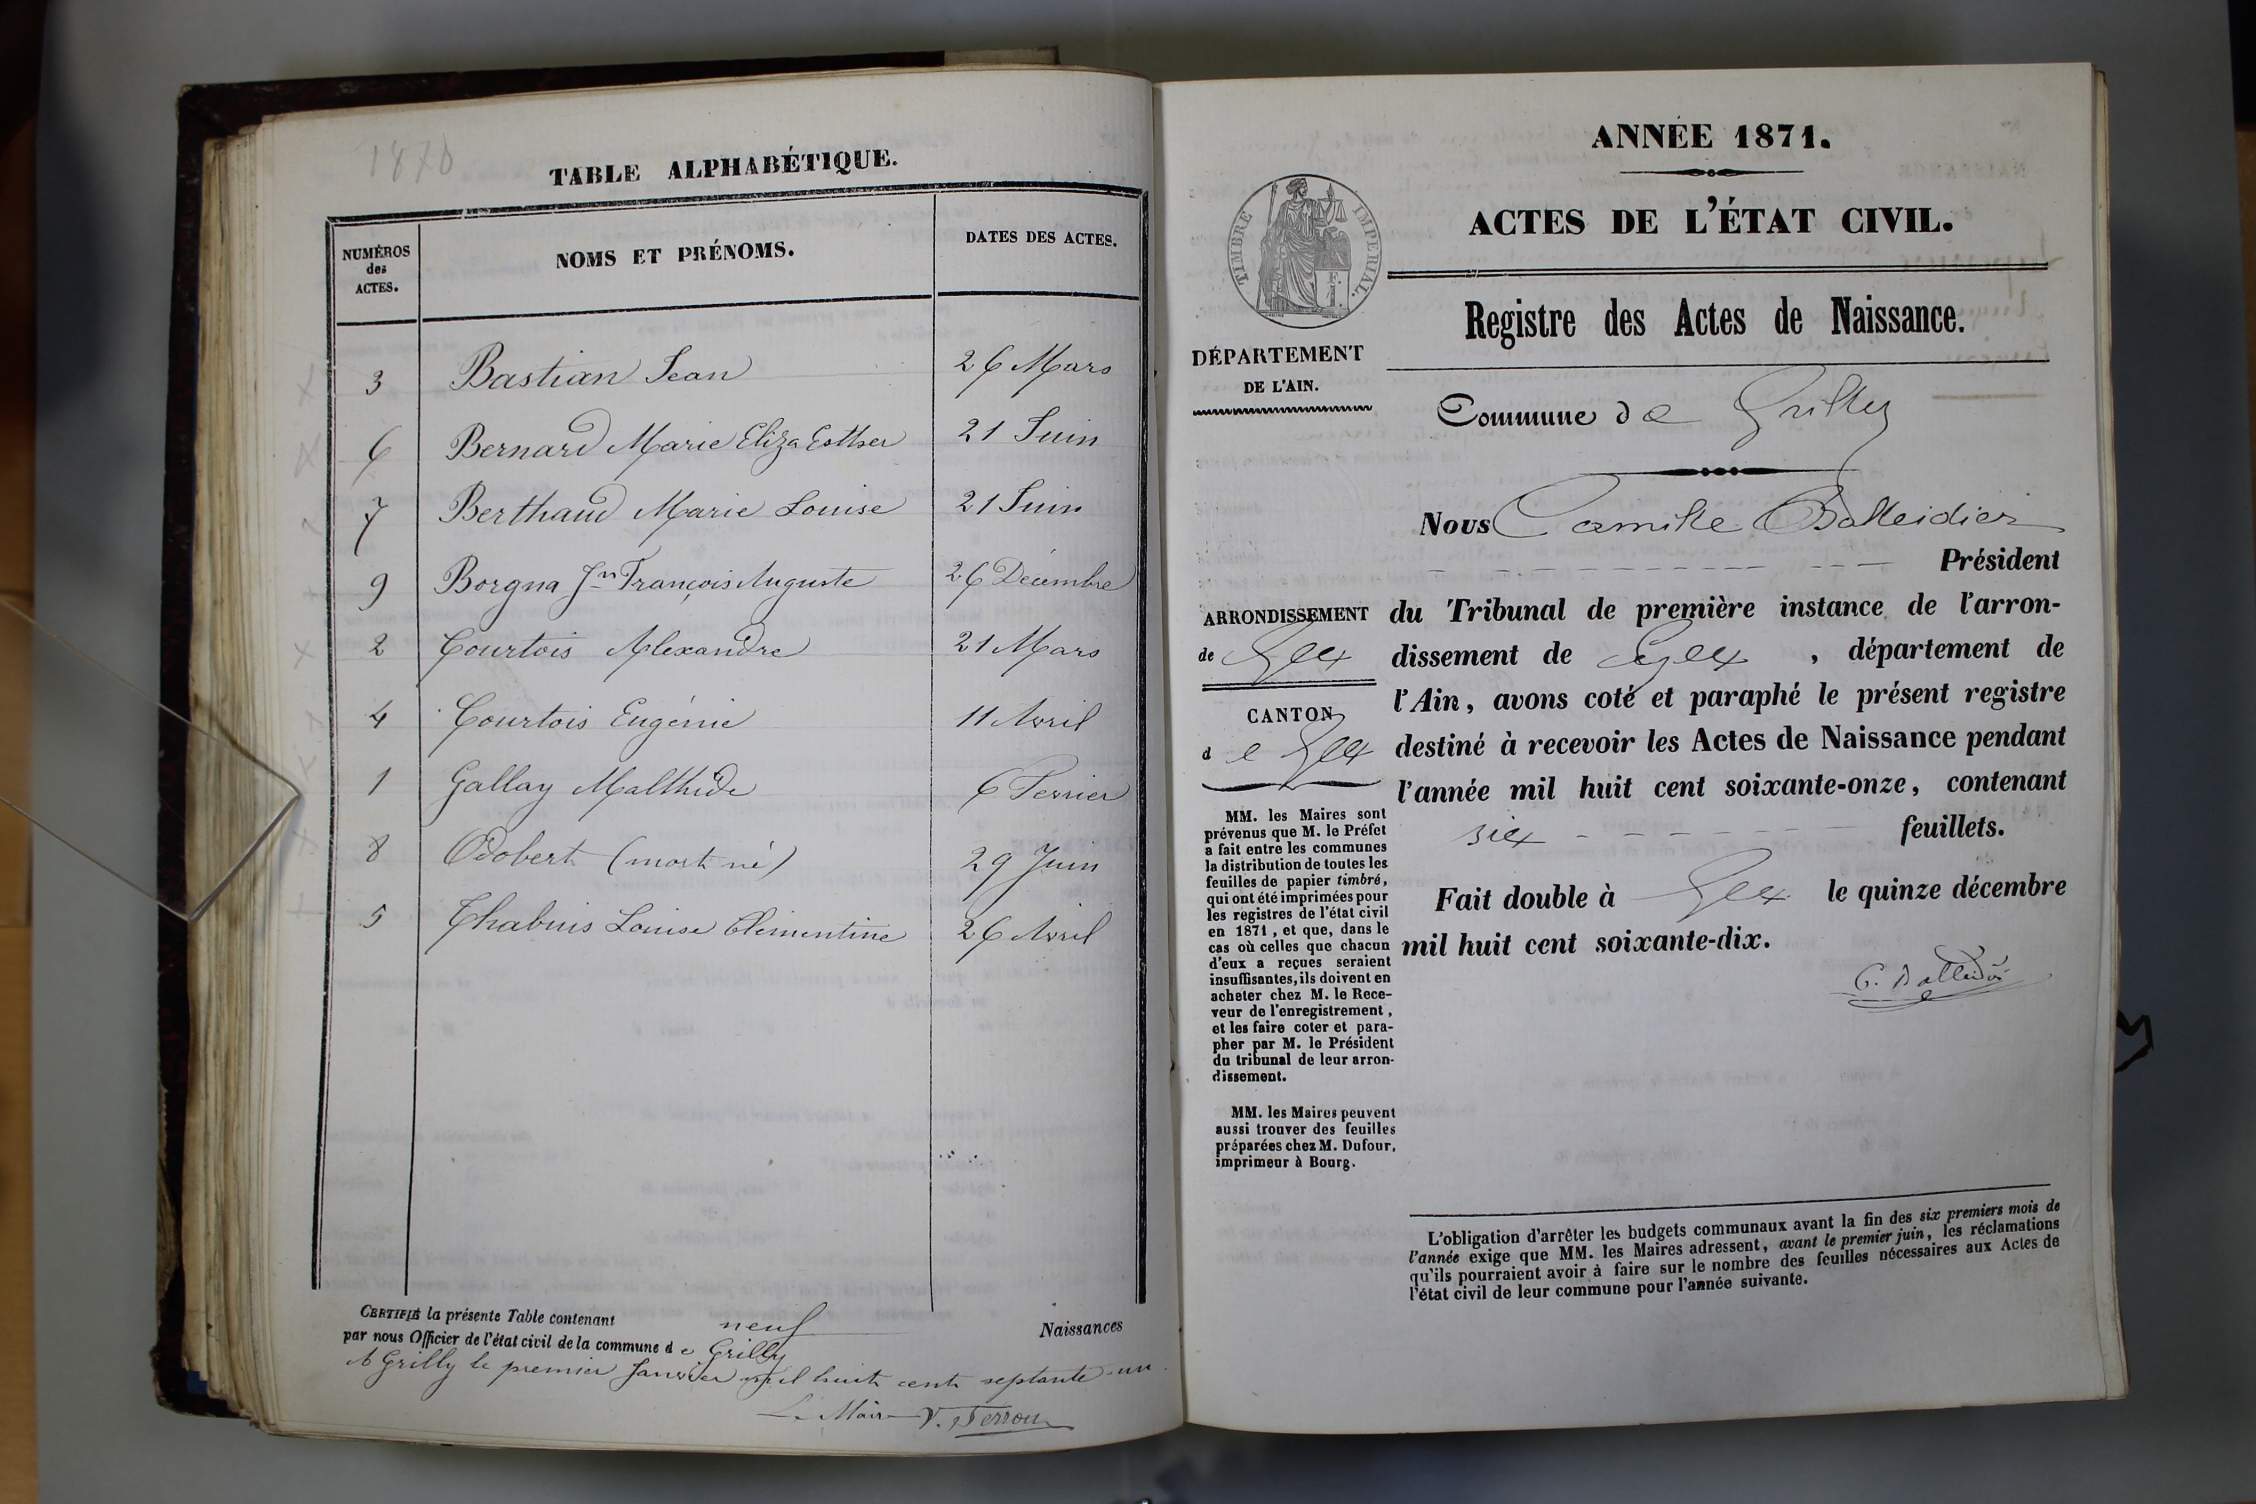 1870
TABLE ALPHABÉTIQUE.
NUMÉROS des ACTES. NOMS ET PRÉNOMS. DATES DES ACTES.
3 Bastian Jean 26 Mars
6 Bernard Marie Eliza Esther 21 Juin
7 Berthaud Marie Louise 21 Juin
9 Borgna Jn François Auguste 26 Décembre
2 Courtois Alexandre 21 Mars
4 Courtois Eugénie 11 Avril
1 Gallay Malthide 6 Fevrier
8 Odobert (mort né) 29 Juin
5 Chabuis Louise Clémentine 26 Avril
CERTIFIÉ la présente Table contenant neuf Naissances
par nous Officier de l'état civil de la commune de Grilly
A Grilly le premier Janvier mil huit cent septante-un
Le Maire V. Perrou
ANNÉE 1871.
ACTES DE L'ÉTAT CIVIL.
TIMBRE IMPERIAL.
Registre des Actes de Naissance.
DÉPARTEMENT
DE L'AIN.
Commune de Grilly
Nous Camille Balleidier
Président
du Tribunal de première instance de l'arron-
dissement de Gex, département de
l'Ain, avons coté et paraphé le présent registre
destiné à recevoir les Actes de Naissance pendant
l'année mil huit cent soixante-onze, contenant
six feuillets.
Fait double à Gex le quinze décembre
mil huit cent soixante-dix.
C. Balleidier
ARRONDISSEMENT
de Gex
CANTON
de Gex
MM. les Maires sont
prévenus que M. le Préfet
a fait entre les communes
la distribution de toutes les
feuilles de papier timbré,
qui ont été imprimées pour
les registres de l'état civil
en 1871, et que, dans le
cas où celles que chacun
d'eux a reçues seraient
insuffisantes, ils doivent en
acheter chez M. le Rece-
veur de l'enregistrement,
et les faire coter et para-
pher par M. le Président
du tribunal de leur arron-
dissement.
MM. les Maires peuvent
aussi trouver des feuilles
préparées chez M. Dufour,
imprimeur à Bourg.
L'obligation d'arrêter les budgets communaux avant la fin des six premiers mois de
l'année exige que MM. les Maires adressent, avant le premier juin, les réclamations
qu'ils pourraient avoir à faire sur le nombre des feuilles nécessaires aux Actes de
l'état civil de leur commune pour l'année suivante.